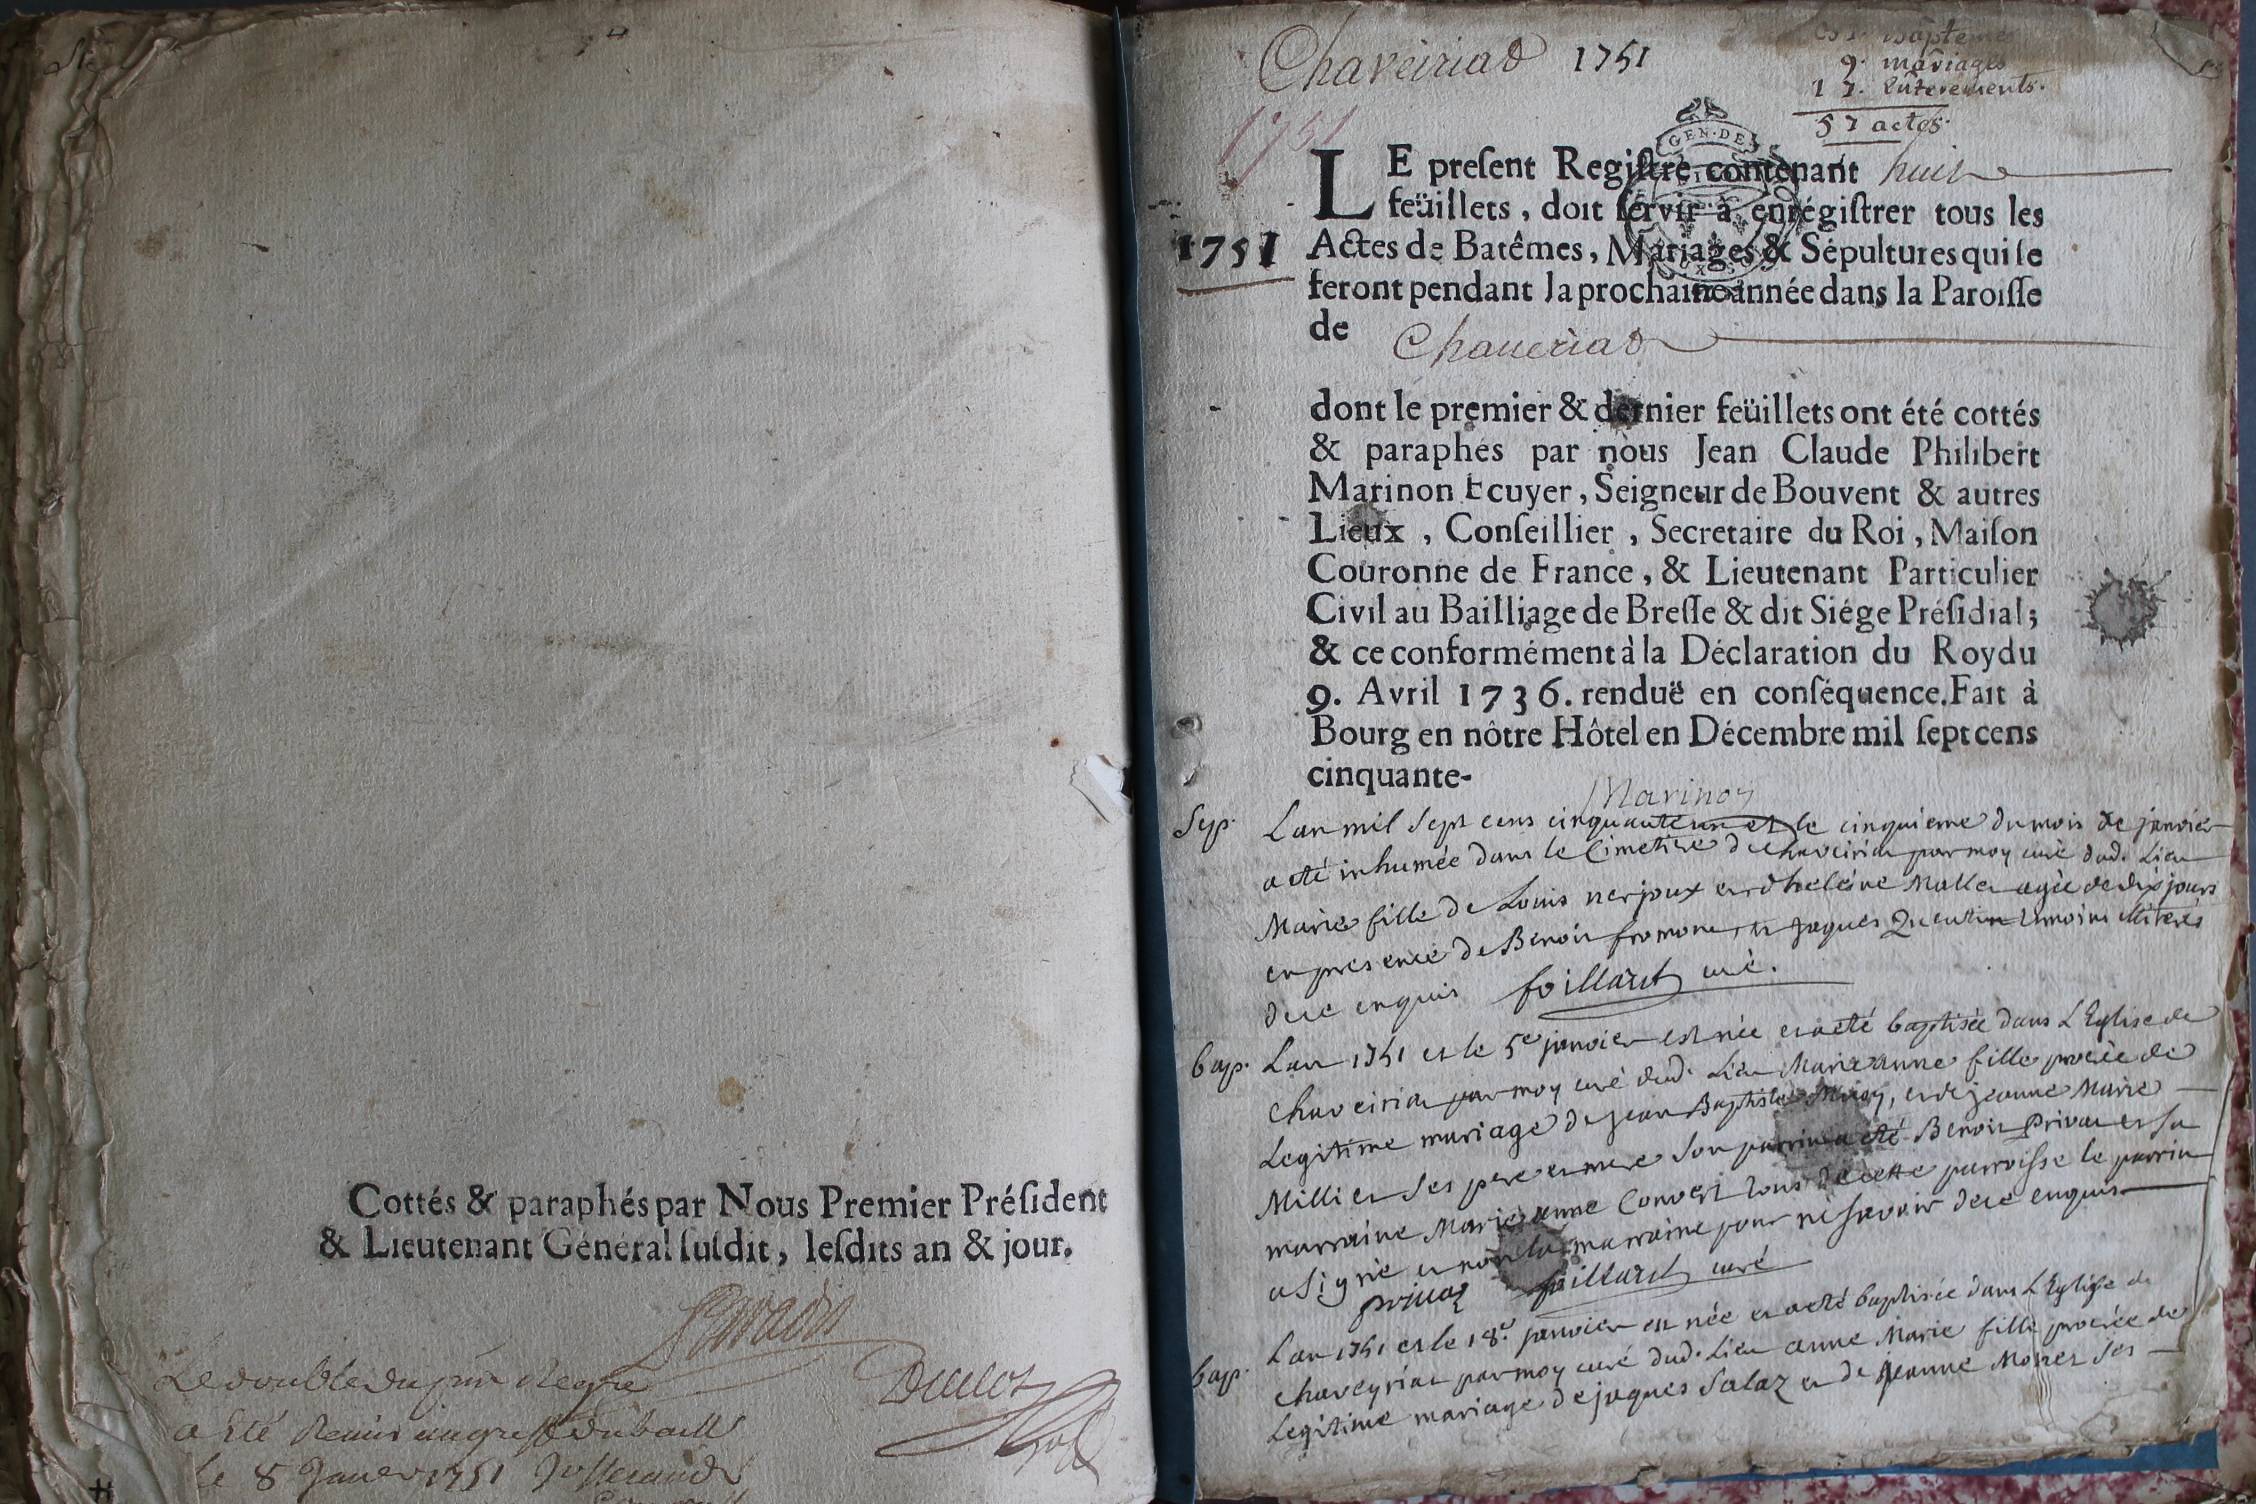 Cottés & paraphés par Nous Premier Présiden̄t
& Lieutenant Général susdit, lesdits an & jour.
Le double du pñt Regre
a Eté Remis au greffe du baill
Le 8 Janer 1751
Chaveiriad 1751
31. Baptemes
9. mariages
17. Enterements.
57 actes.
1751
GEN·DE
LE preſent Regiſtre contenant huit
feüillets, doit ſervir à enrégiſtrer tous les
1751
Actes de Batêmes, Mariages & Sépultures qui ſe
feront pendant la prochaine année dans la Paroiſſe
de Chaueriad
dont le premier & dernier feüillets ont été cottés
& paraphés par nous Jean Claude Philibert
Marinon Ecuyer, Seigneur de Bouvent & autres
Lieux, Conſeillier, Secretaire du Roi, Maiſon
Couronne de France, & Lieutenant Particulier
Civil au Bailliage de Breſſe & dit Siége Préſidial;
& ce conformément à la Déclaration du Roy du
9. Avril 1736. renduë en conſéquence. Fait à
Bourg en nôtre Hôtel en Décembre mil ſept cens
cinquante-
Marinon
Sep. Lan mil sept cens cinquante un et le cinquieme du mois de janvier
a eté inhumée dans le Cimetiere de chaveiria par moy curé dud. Lieu
Marie fille de Louis nerjoux et d heleine Mallet agée de dix jours
en presence de Benoit fromont et jaques Quentin temoins illiterés
de ce enquis foillard curé.
bap. Lan 1751 et le 5e janvier est née et a eté baptisée dans L Eglise de
chaveiria par moy curé dud. Lieu Marie anne fille procrée de
Legitime mariage de jean Baptiste, et de jeanne Marie
Millier ses pere et mere son parrin a eté Benoit Privat et sa
marraine Marie anne Convert tous de cette parroisse le parrin
a signé et non la marraine pour ne savoir de ce enquis
privaz foillard curé
bap. Lan 1751 et le 18e. janvier est née et a eté baptisée dans L Eglise de
chaveyriat par moy curé dud. Lieu anne Marie fille procrée de
Legitime mariage de jaques Salaz et de jeanne Moret ses